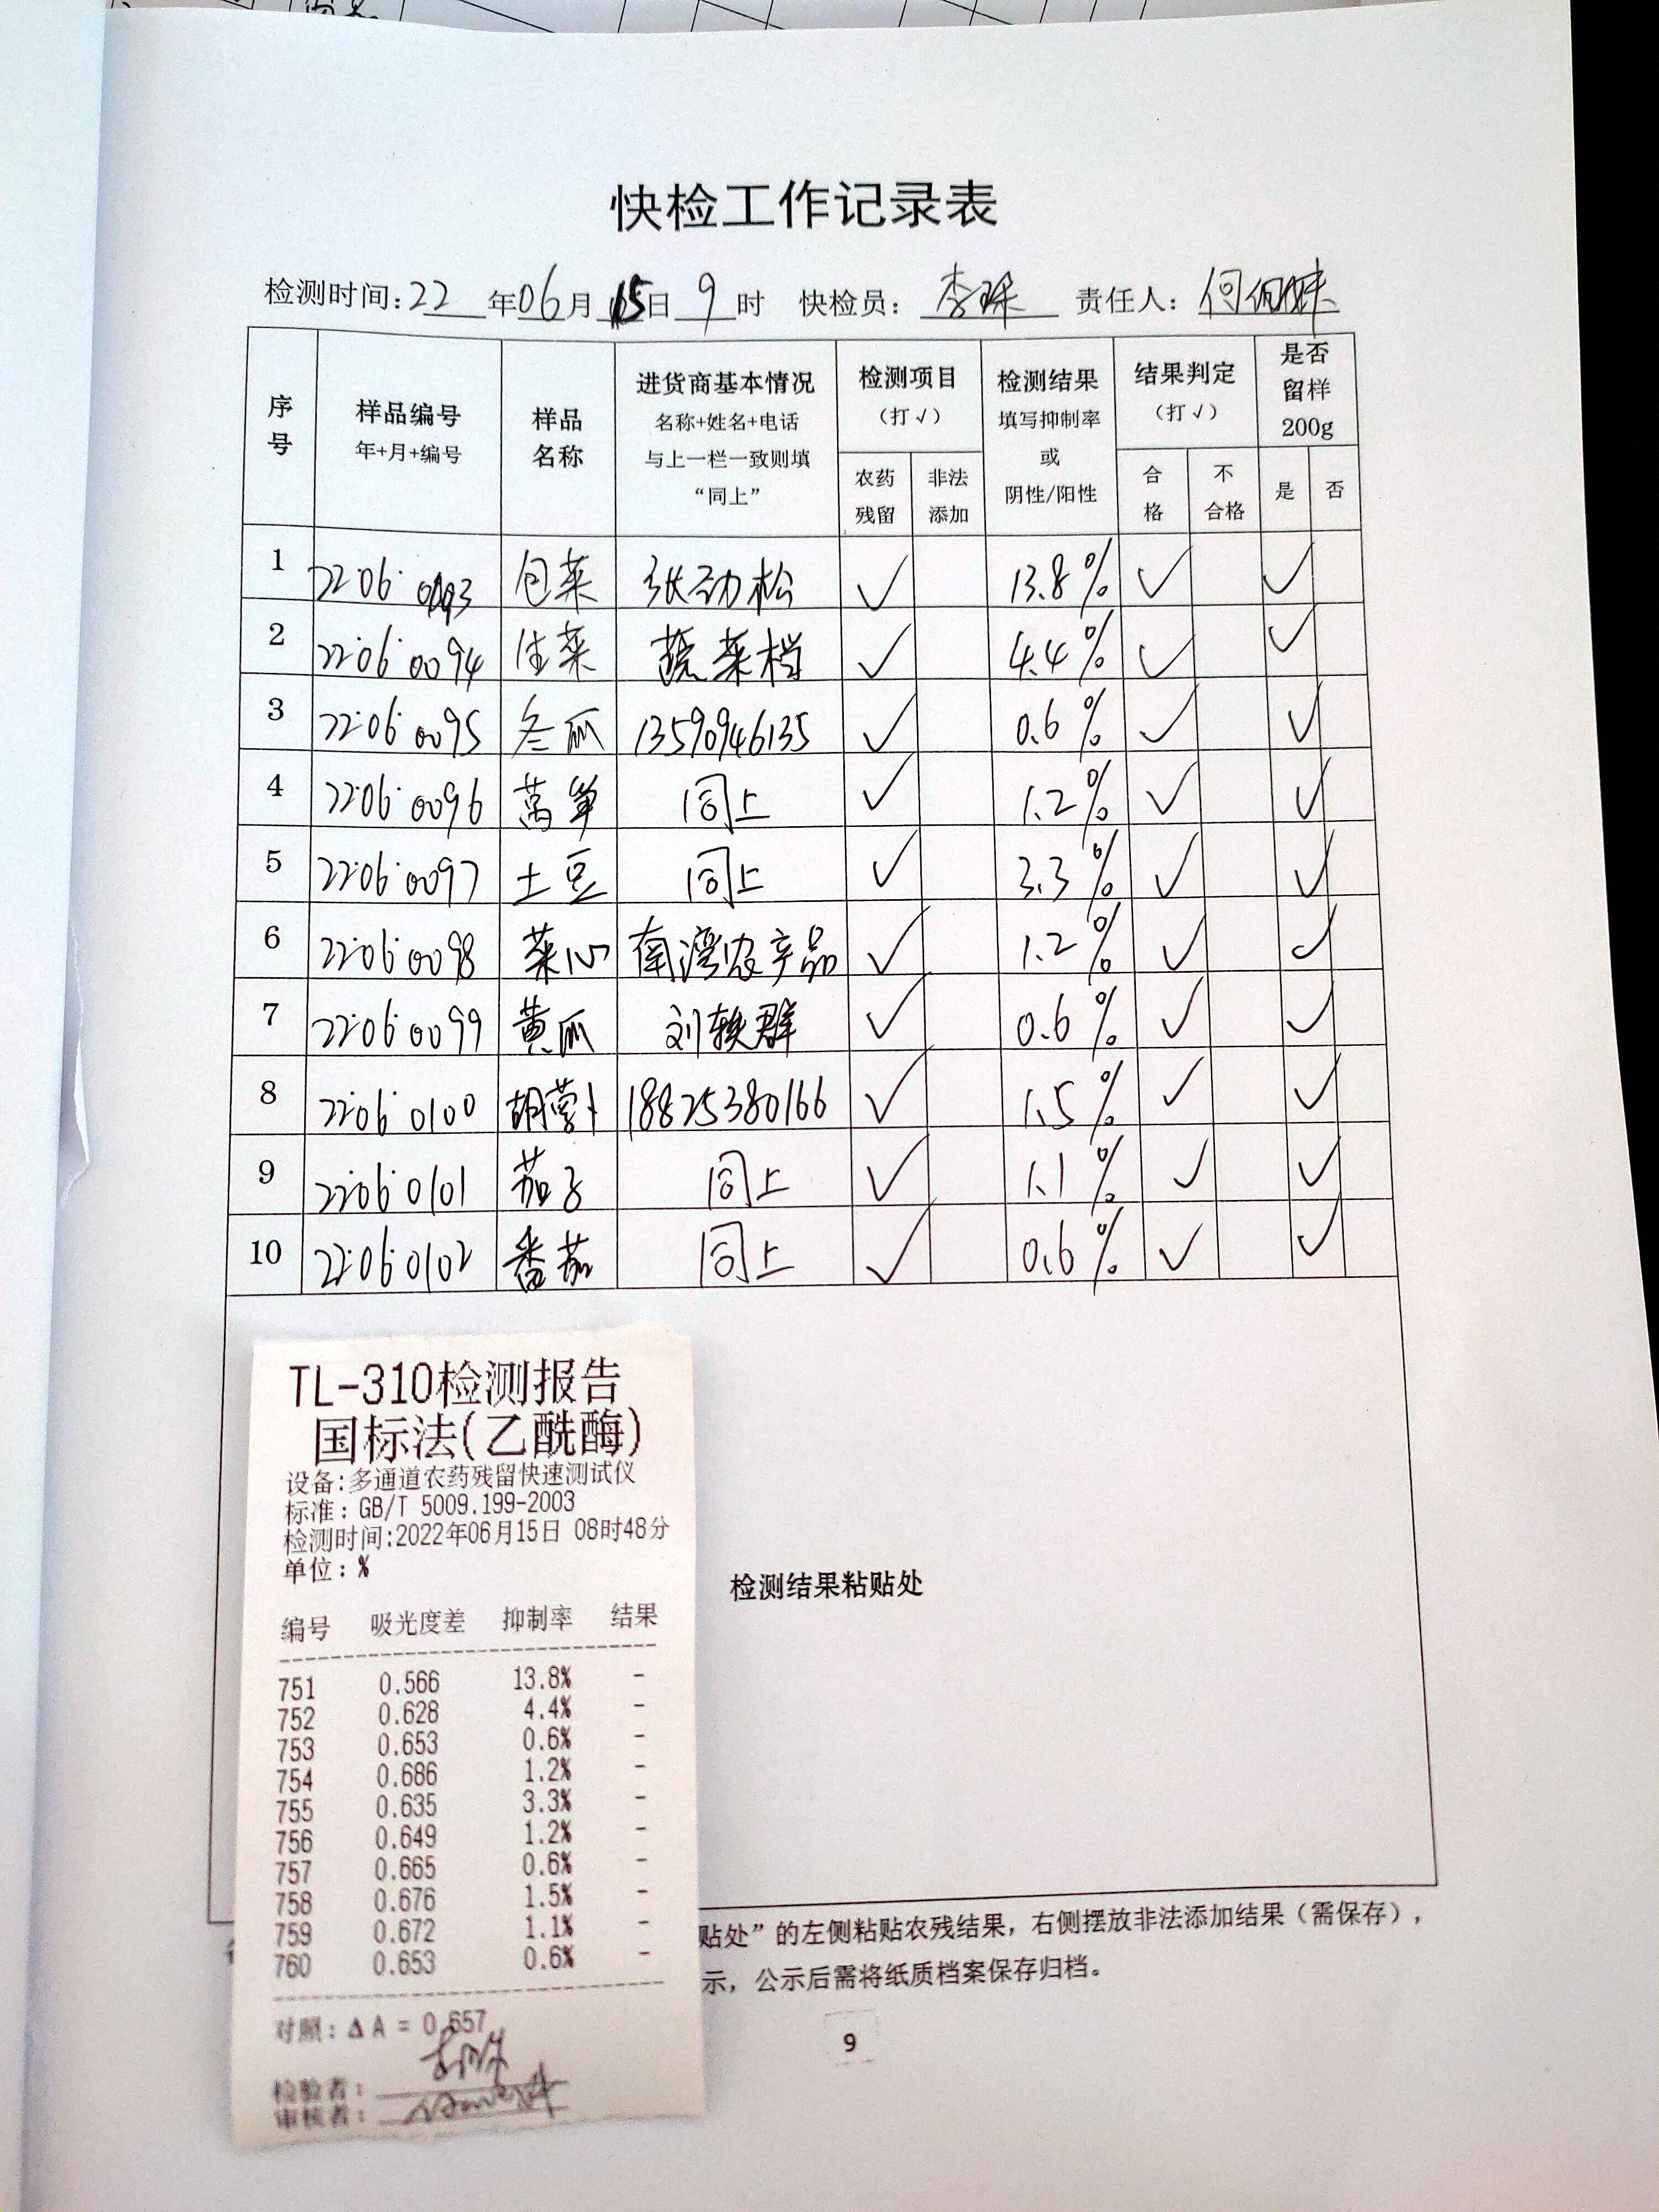 快检工作记录表
检测时间:22年06月15日9时 快检员:李球 责任人:
序号 样品编号 年+月+编号 样品名称 进货商基本情况 名称+姓名+电话 与上一栏一致则填“同上” 检测项目(打√) 农药残留 非法添加 检测结果 填写抑制率或阴性/阳性 结果判定(打√) 合格 不合格 是否留样200g 是 否
1 22060093 包菜 张劲松 √ 13.8% √ √
2 22060094 生菜 蔬菜档 √ 4.4% √ √
3 22060095 冬瓜 13590946135 √ 0.6% √ √
4 22060096 莴笋 同上 √ 1.2% √ √
5 22060097 土豆 同上 √ 3.3% √ √
6 22060098 菜心 南湾农产品 √ 1.2% √ √
7 22060099 黄瓜 刘轶群 √ 0.6% √ √
8 22060100 胡萝卜 18825380166 √ 1.5% √ √
9 22060101 茄子 同上 √ 1.1% √ √
10 22060102 番茄 同上 √ 0.6% √ √
检测结果粘贴处
TL-310检测报告
国标法(乙酰酶)
设备:多通道农药残留快速测试仪
标准:GB/T 5009.199-2003
检测时间:2022年06月15日 08时48分
单位:%
编号 吸光度差 抑制率 结果
751 0.566 13.8% -
752 0.628 4.4% -
753 0.653 0.6% -
754 0.686 1.2% -
755 0.635 3.3% -
756 0.649 1.2% -
757 0.665 0.6% -
758 0.676 1.5% -
759 0.672 1.1% -
760 0.653 0.6% -
对照:ΔA = 0.657
检验者:
审核者:
贴处”的左侧粘贴农残结果，右侧摆放非法添加结果（需保存），
示，公示后需将纸质档案保存归档。
9